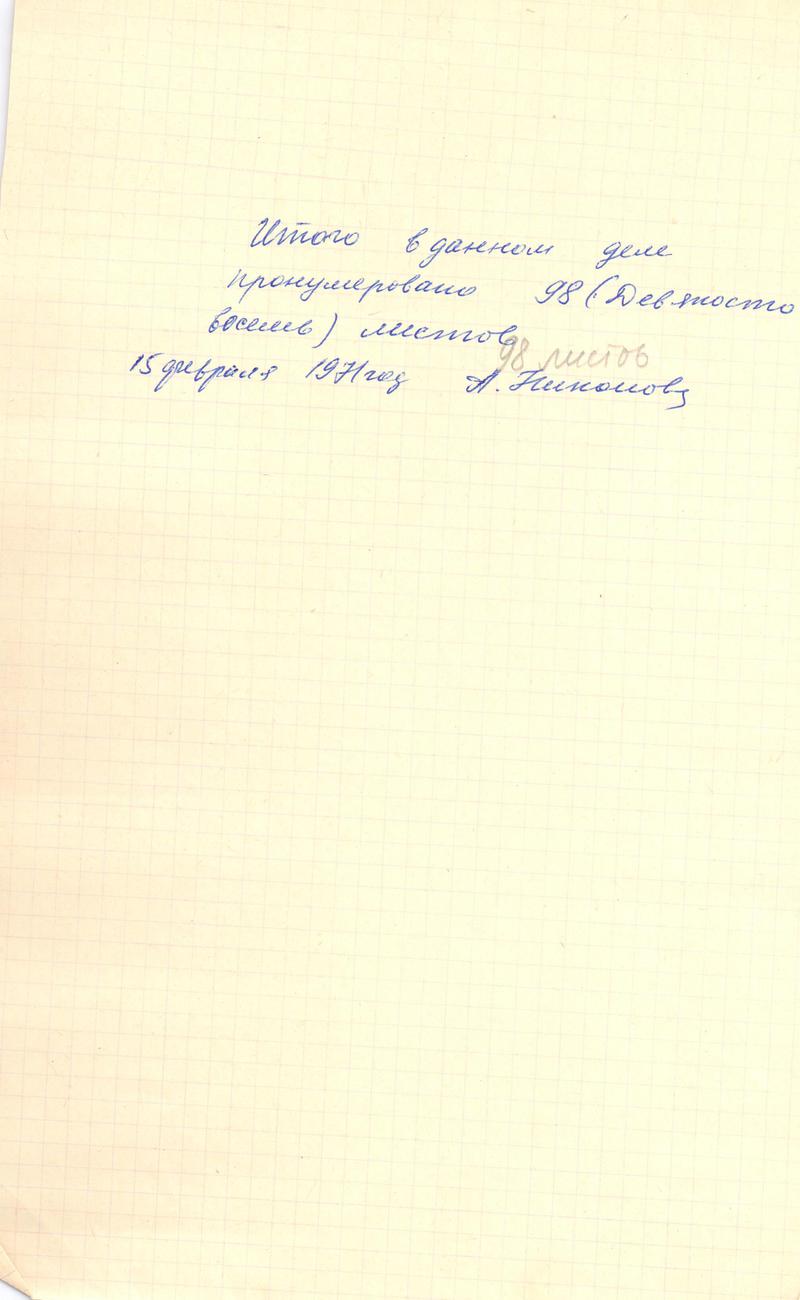 Итого в данном деле
пронумеровано 98 (Девяносто
восемь) листов
98 листов
15 февраля 1971 год А. Никонова